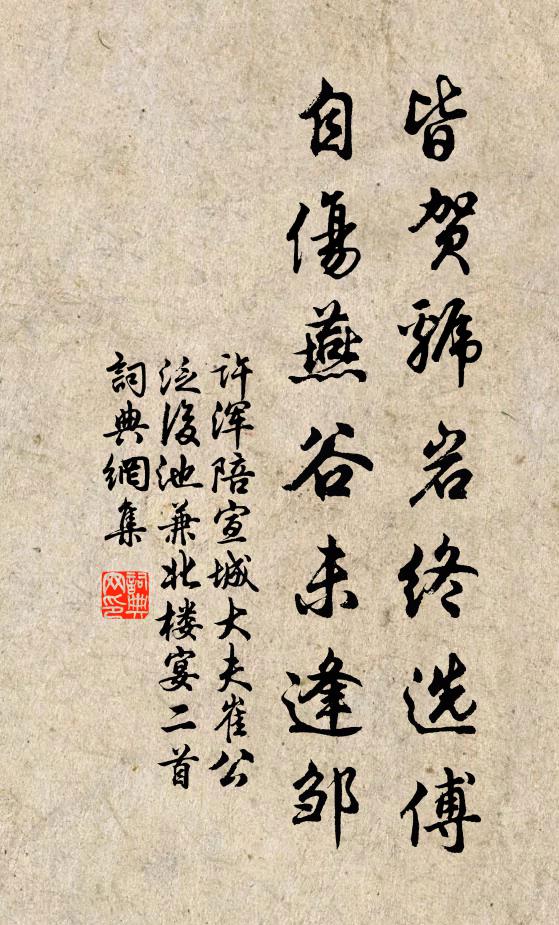 皆贺虢岩终选傅
自傷燕谷未逢邹
许浑陪宣城大夫崔公
泛後池兼北楼宴二首
詞典網集
詞典网印